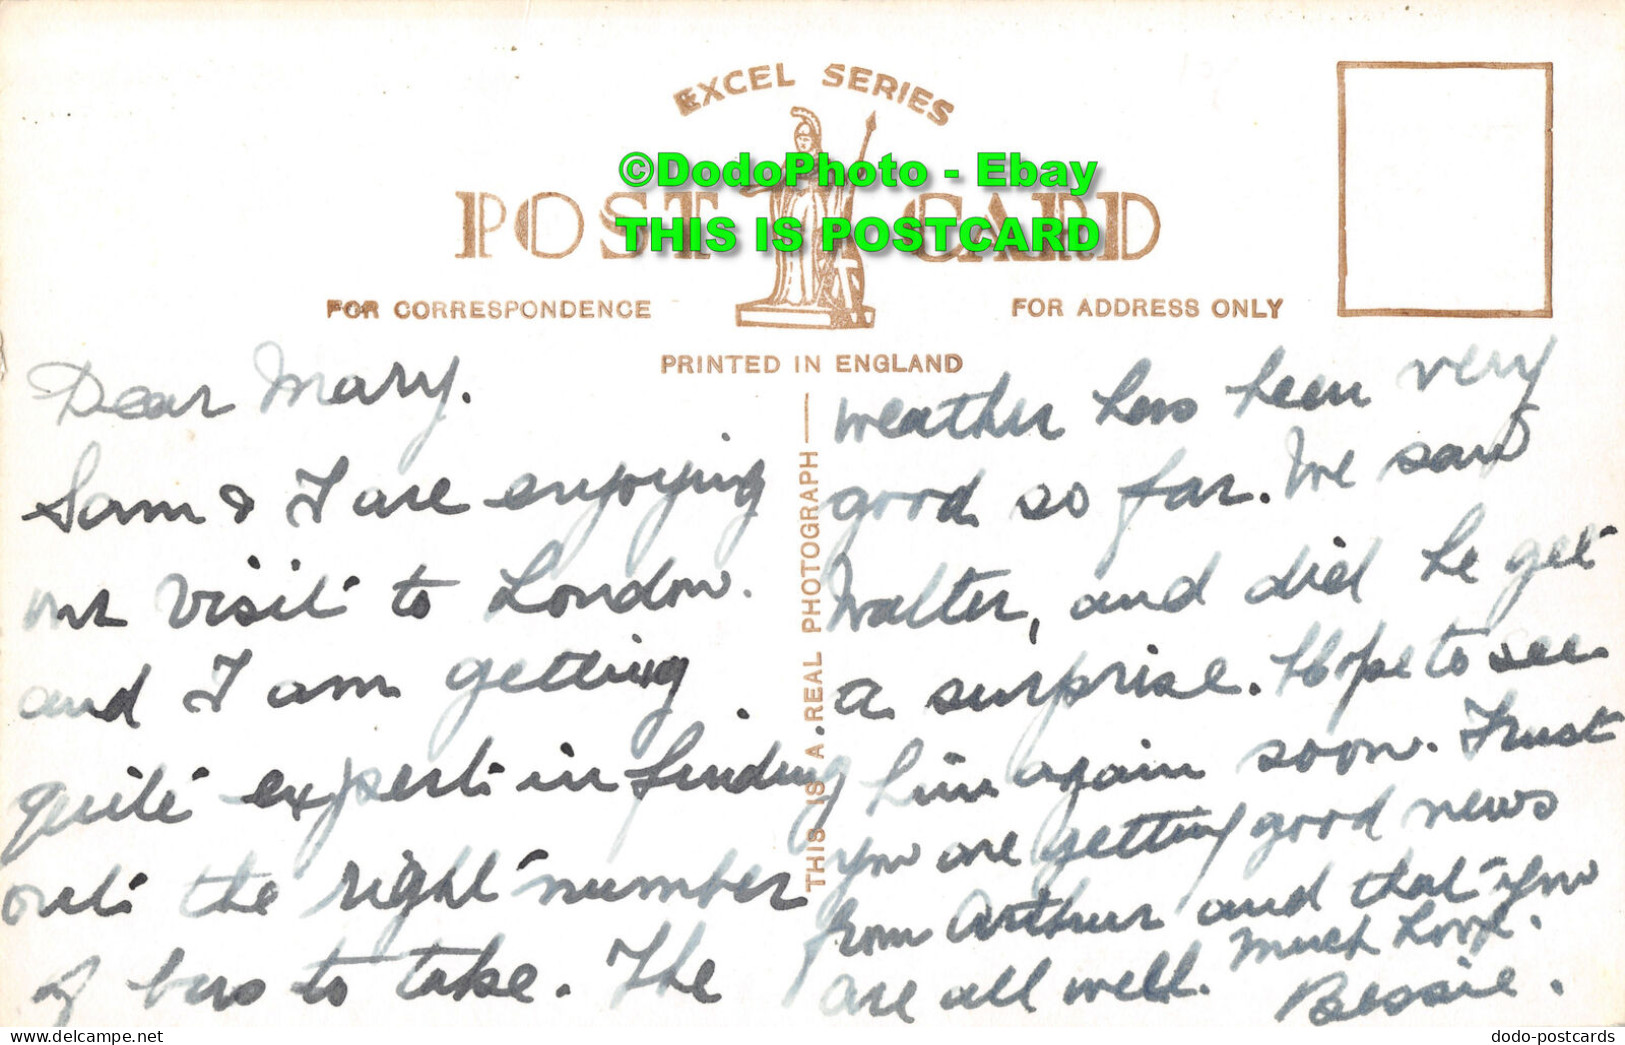 EXCEL SERIES
©DodoPhoto - Ebay
POST CARD
THIS IS POSTCARD
FOR CORRESPONDENCE
FOR ADDRESS ONLY
PRINTED IN ENGLAND
THIS IS A REAL PHOTOGRAPH
Dear Mary.
Sam & I are enjoying
our visit to London.
and I am getting
quite expert in finding
out the right number
of bus to take. The
weather has been very
good so far. We saw
Walter, and did he get
a surprise. Hope to see
him again soon. Trust
you are getting good news
from Arthur and that you
are all well. Much Love.
Bessie.
dodo-postcards